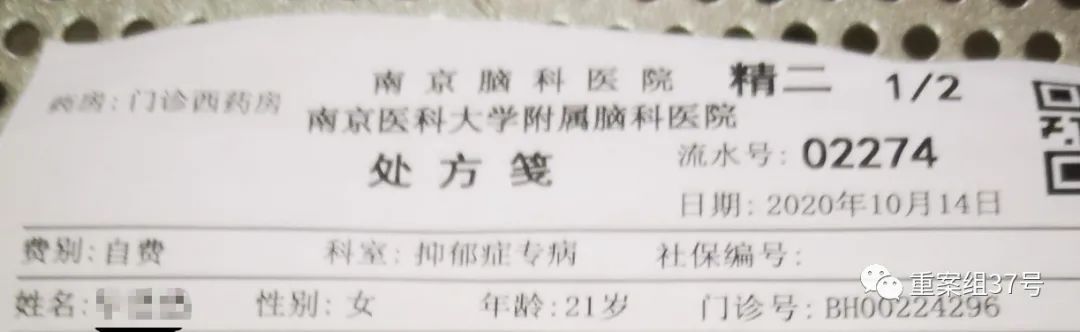 南京脑科医院 精二 1/2
药房: 门诊西药房
南京医科大学附属脑科医院
处方笺 流水号: 02274
日期: 2020年10月14日
费别: 自费 科室: 抑郁症专病 社保编号:
姓名: 性别: 女 年龄: 21岁 门诊号: BH00224296
重案组37号